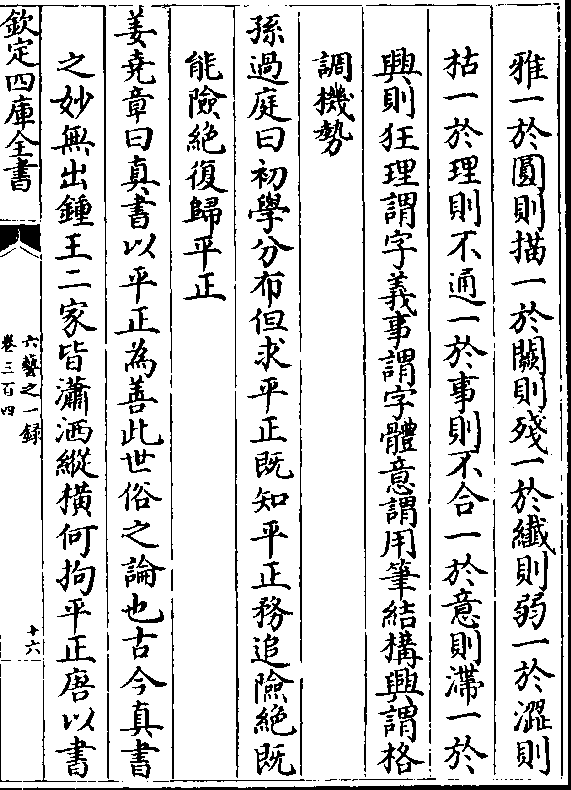 雅一於圓則描一於闕則殘一於纖則弱一於澀則
枯一於理則不通一於事則不合一於意則滯一於
興則狂理謂字義事謂字體意謂用筆結構興謂格
調機勢
孫過庭曰初學分布但求平正既知平正務追險絶既
能險絶復歸平正
姜堯章曰真書以平正為善此世俗之論也古今真書
之妙無出鍾王二家皆瀟洒縱橫何拘平正唐以書
欽定四庫全書
六藝之一録
卷三百四
十六